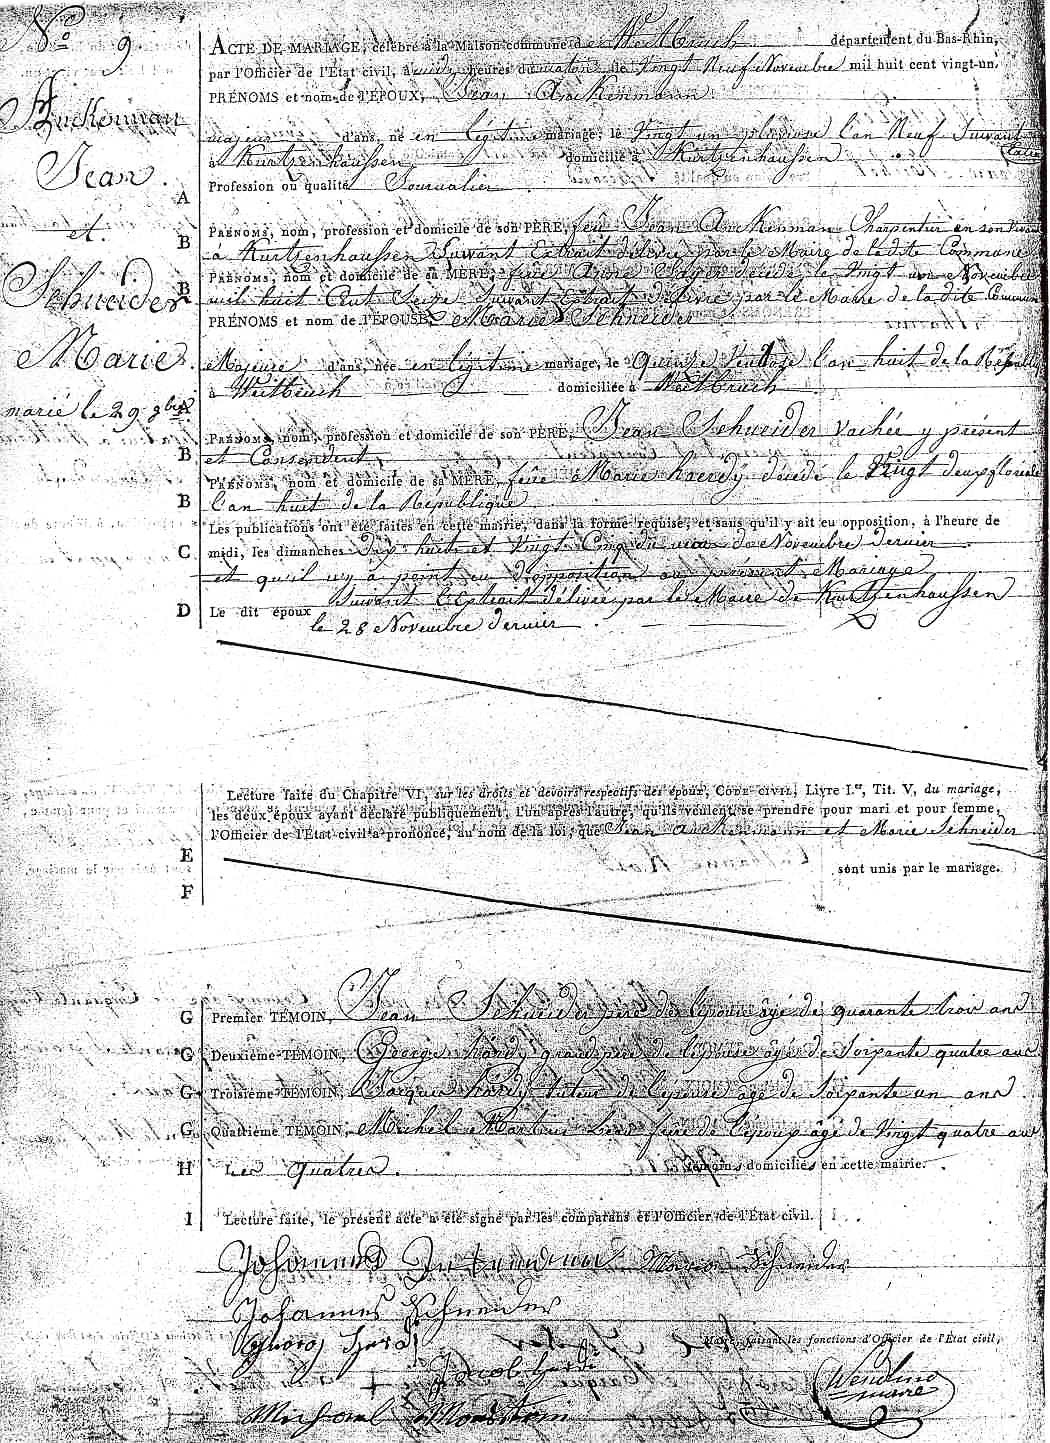 N.o 9.
Auckenman
Jean.
et.
Schneider
Marie.
marié le 29 9bre
ACTE DE MARIAGE, célébré à la Maison commune de Weitbruch département du Bas-Rhin,
par l'Officier de l'État civil, à heures du matin le Vingt Neuf Novembre mil huit cent vingt-un.
PRÉNOMS et nom de l'ÉPOUX, Jean Auckenmann
majeur d'ans, né en légitime mariage, le Vingt un pluviose l'an Neuf Suivant
à Kurtzenhaussen domicilié à Kurtzenhaussen
A Profession ou qualité Journalier
B PRÉNOMS, nom, profession et domicile de son PÈRE, feu Jean Auckenman Charpentier en son vivant
à Kurtzenhaussen Suivant Extrait délivré par le Maire de la dite Commune
B PRÉNOMS, nom et domicile de sa MÈRE, feue décédé le Vingt Novembre
mil huit Cent Seize Suivant Extrait délivré par le Maire de la dite Commune
PRÉNOMS et nom de l'ÉPOUSE, Marie Schneider
Majeure d'ans, née en légitime mariage, le Quinze Ventose l'an huit de la République
A à Weitbruch domiciliée à Weitbruch
B PRÉNOMS, nom, profession et domicile de son PÈRE, Jean Schneider Vachée y présent
et Consendent,
B PRÉNOMS, nom et domicile de sa MÈRE, feue Marie haerdÿ décédé le Vingt deux floreale
l'an huit de la République
Les publications ont été faites en cette mairie, dans la forme requise, et sans qu'il y ait eu opposition, à l'heure de
C midi, les dimanches dix huit et Vingt Cinq du mois de Novembre dernier
et qu'il n'y à point eu d'opposition au présent Mariage
Suivant l'Extrait délivré par le Maire de Kurtzenhaussen
D Le dit époux
le 28 Novembre dernier
Lecture faite du Chapitre VI, sur les droits et devoirs respectifs des époux, CODE CIVIL, Livre I.er, Tit. V, du mariage,
les deux époux ayant déclaré publiquement, l'un après l'autre, qu'ils veulent se prendre pour mari et pour femme,
l'Officier de l'État civil a prononcé, au nom de la loi, que Jean Auckenmann et Marie Schneider
E
sont unis par le mariage.
F
G Premier TÉMOIN, Jean Schneider père de l'épouse âgé de quarante trois ans
G Deuxième TÉMOIN, George hardy grand père de l'épouse âgé de Soixante quatre ans
G Troisième TÉMOIN, Jacques hardy tuteur de l'épouse âgé de Soixante un ans
G Quatrième TÉMOIN, Michel frère de l'époux âgé de Vingt quatre ans
H Les quatres. témoins domiciliés en cette mairie.
I Lecture faite, le présent acte a été signé par les comparans et l'Officier de l'État civil.
Johannes Maria Schneider
Johannes Schneider
Maire, faisant les fonctions d'Officier de l'État civil,
Jacob
Wendling
maire
Michael